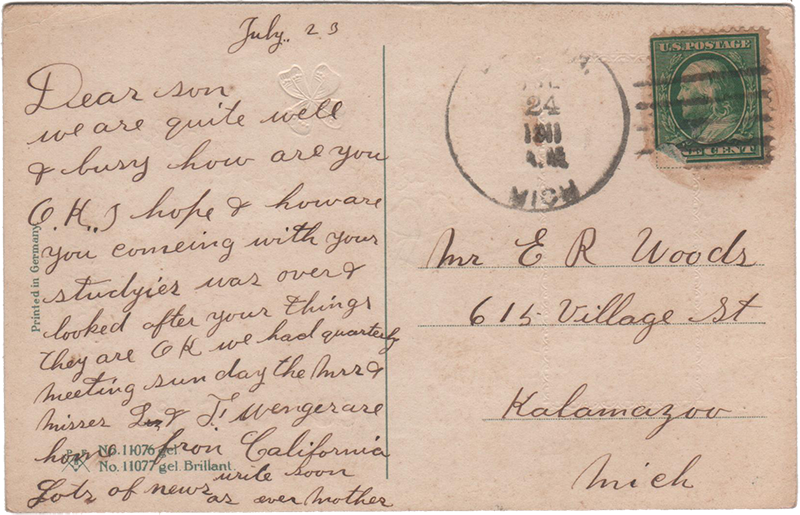 July.. 23
Dear son
we are quite well
& busy how are you
O.K.. I hope & how are
you comeing with your
studyies was over &
looked after your things
They are OK we had quarterly
meeting sunday the Mrs &
misses L & F Wenger are
home from California
Lots of news write soon
as ever mother
Printed in Germany
No. 11076 gel
No. 11077 gel. Brillant.
24
1911
A.M.
U.S. POSTAGE
CENT
Mr E R Woods
615 Village St
Kalamazoo
Mich